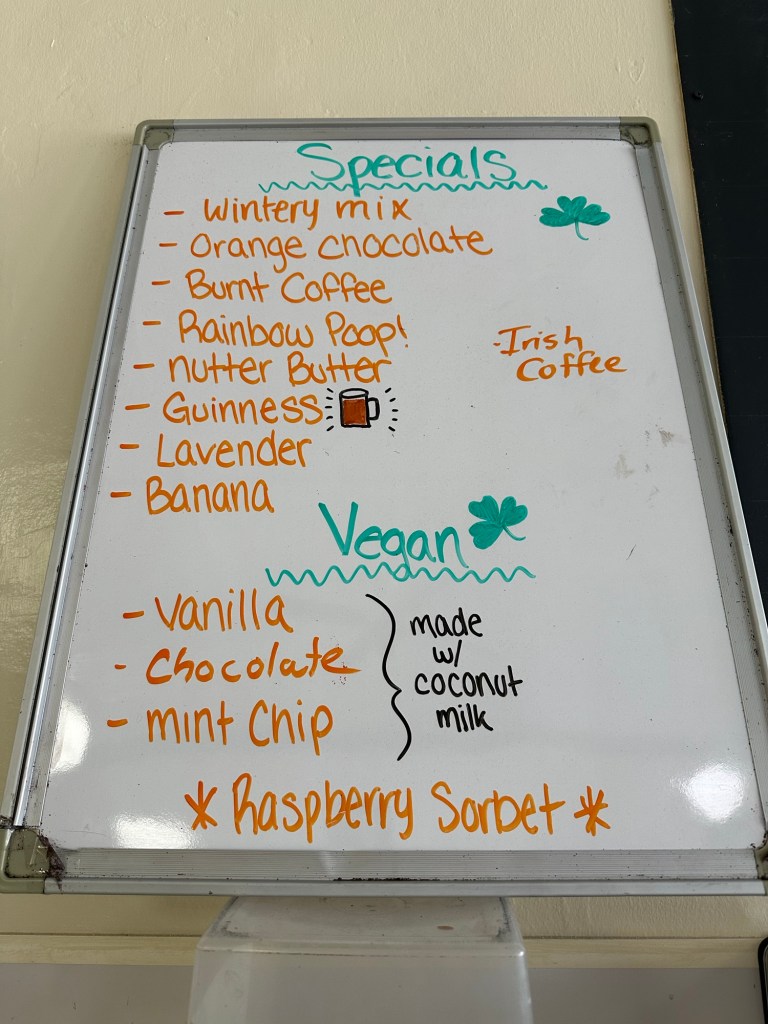 Specials
- Wintery mix
- Orange chocolate
- Burnt Coffee
- Rainbow Poop!
- nutter Butter
- Guinness
- Lavender
- Banana
- Irish
Coffee
Vegan
- Vanilla
- Chocolate
- mint Chip
made
w/
coconut
milk
* Raspberry Sorbet *